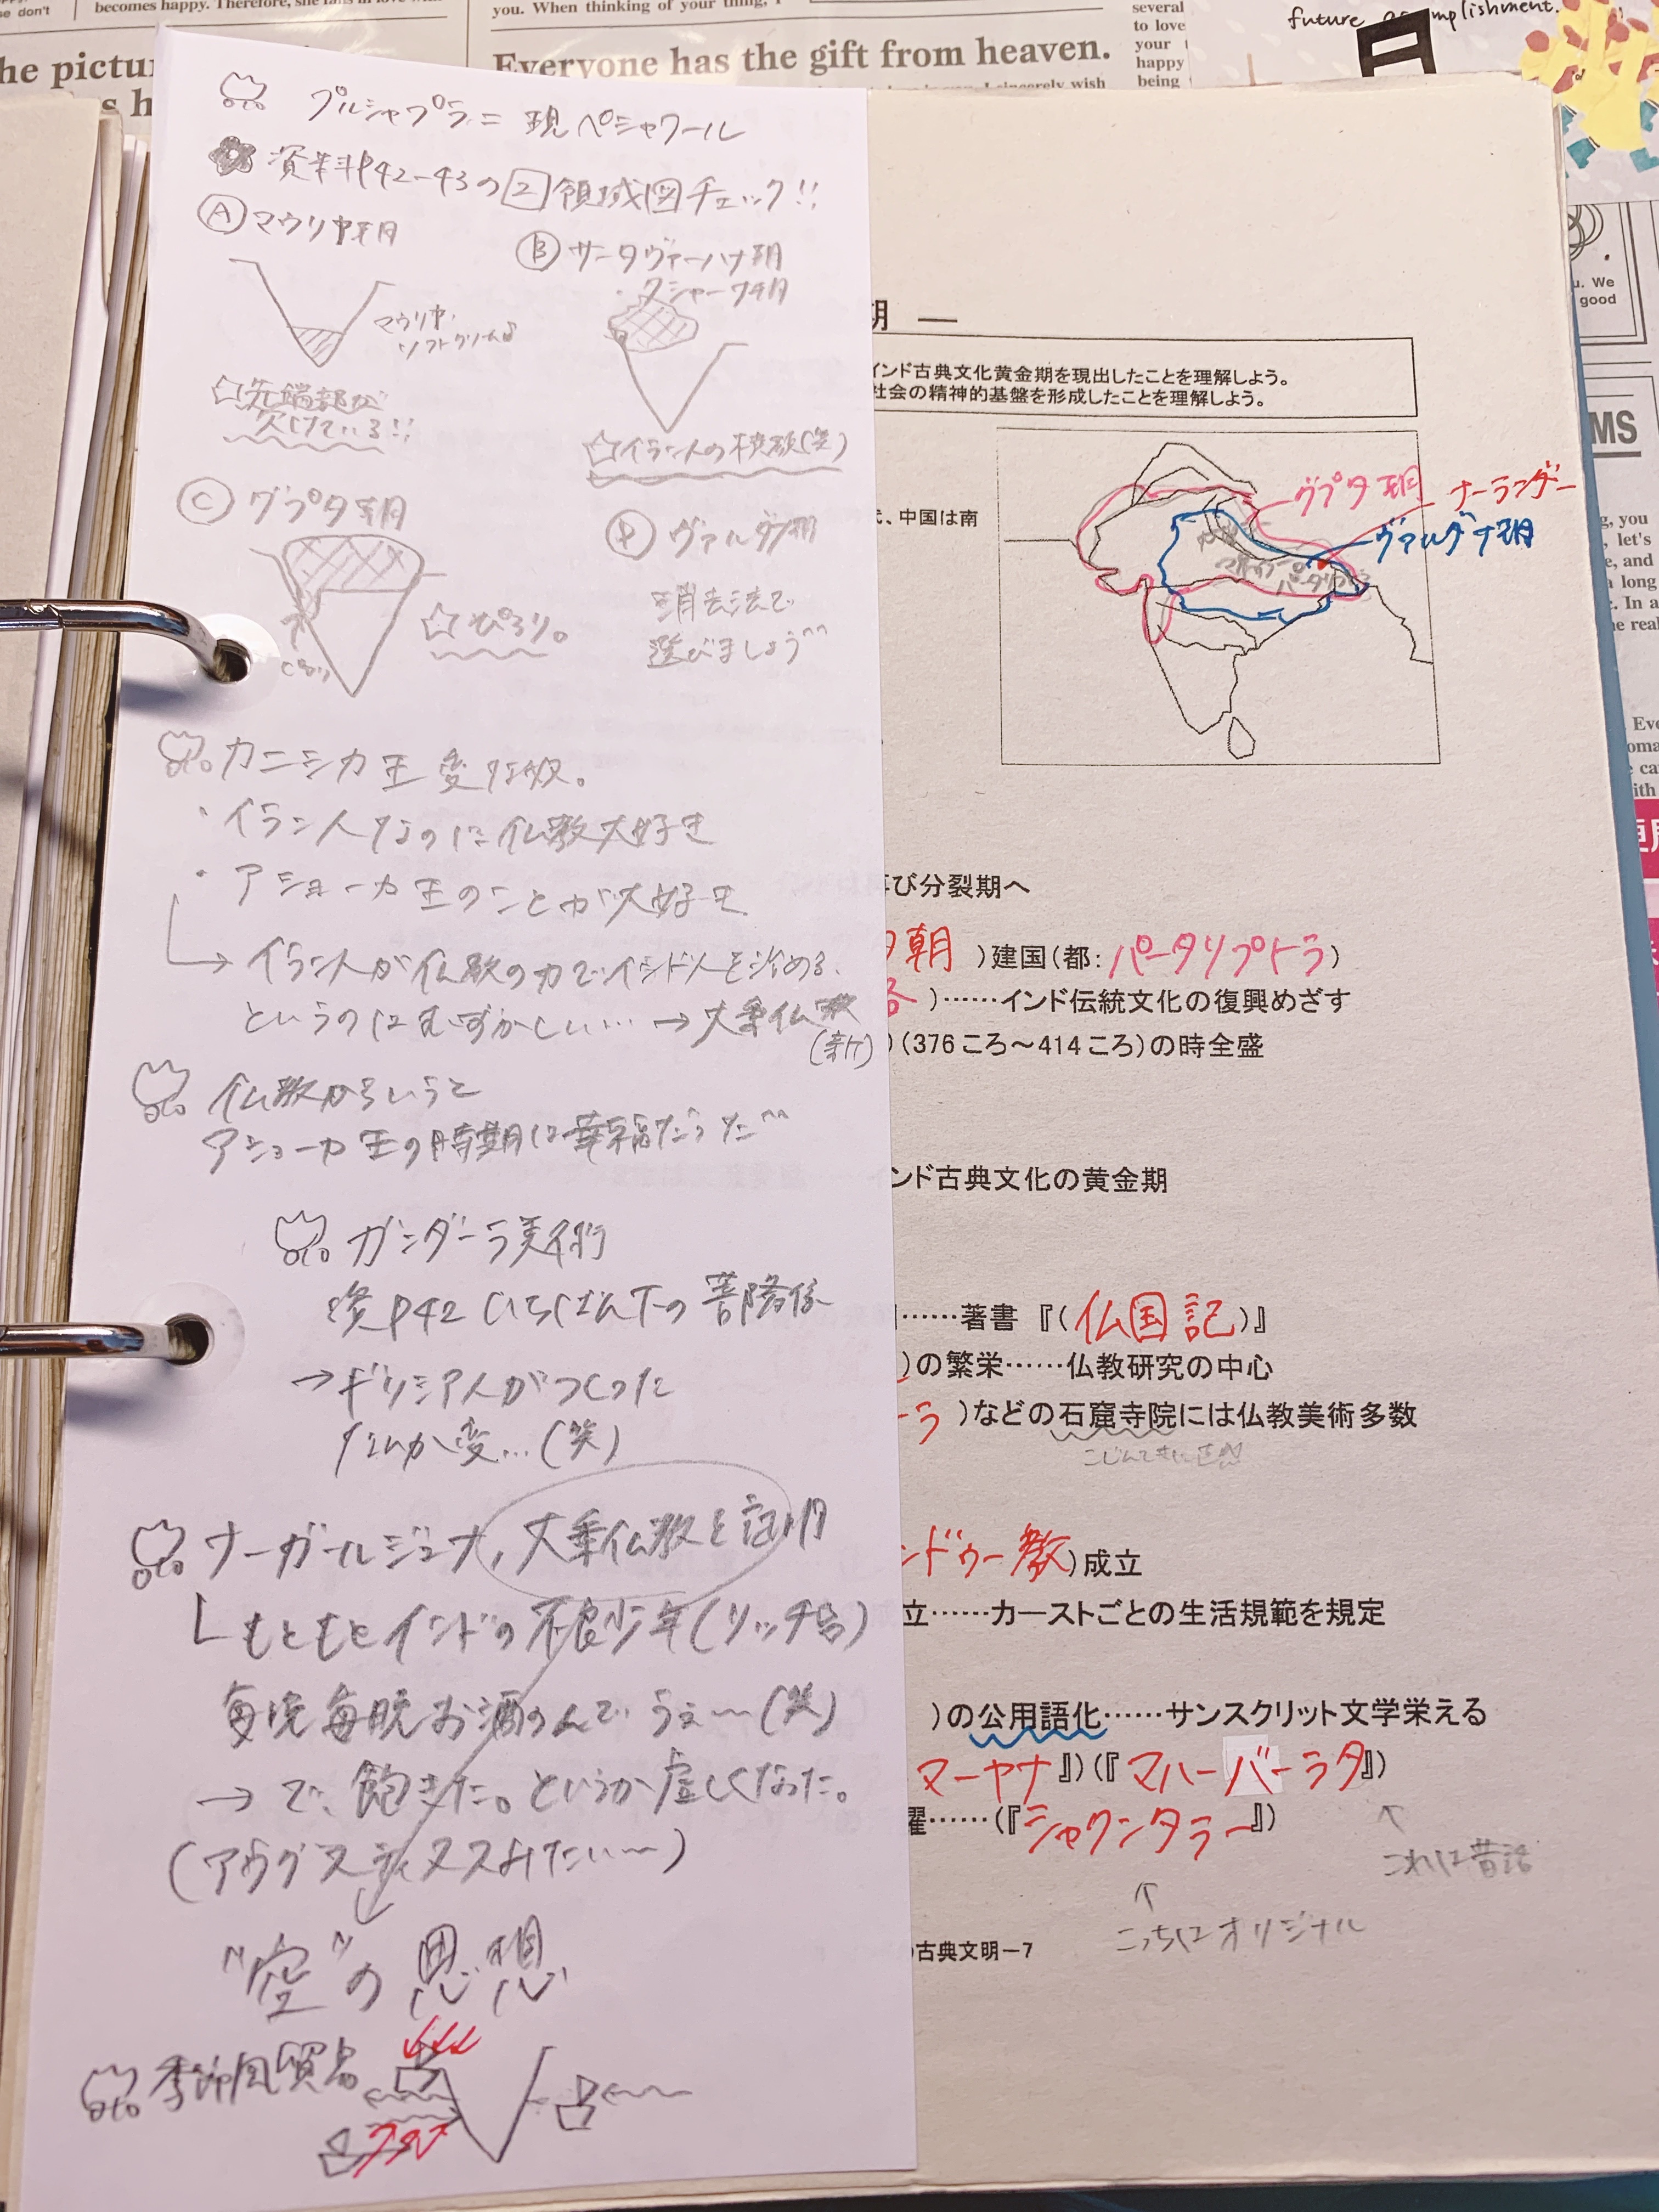 becomes happy. Therefore, she
se don't
you. When thinking of your thing, I
he pictu
s h
Everyone has the gift from heaven.
I sincerely wish
several
to love
your
happy
being
future
mplishment.
プルシャプラ= 現ペシャワール
資料P42-43の2領域図チェック!!
Ⓐマウリヤ朝
Ⓑサータヴァーハナ朝
・クシャーナ朝
マウリヤ・
ソフトクリーム♪
☆先端部が
欠けている!!
☆イラン人の横顔(笑)
Ⓒグプタ朝
Ⓓヴァルダナ朝
☆ぴろり。
消去法で
選びましょう^^
カニシカ王 変な奴。
・イラン人なのに仏教大好き
・アショーカ王のことが大好き
→イラン人が仏教の力でインド人を治める
というのはむずかしい…→大乗仏教
(新)
仏教からいうと
アショーカ王の時期は幸福だった^^
ガンダーラ美術
資P42 いちばん下の菩薩像
→ギリシア人がつくった
なんか変…(笑)
ナーガールジュナ,大乗仏教を説明
もともとインドの不良少年(リッチ)
毎晩毎晩お酒のんでうぇ〜(笑)
→で、飽きた。というか虚しくなった。
(アウグスティヌスみたい〜)
"空"の思想
季節風貿易
期 ―
インド古典文化黄金期を現出したことを理解しよう。
社会の精神的基盤を形成したことを理解しよう。
、中国は南
グプタ朝
ナーランダー
ヴァルダナ朝
パータリプトラ
再び分裂期へ
タ朝 )建国(都:パータリプトラ)
)……インド伝統文化の復興めざす
)(376ころ〜414ころ)の時全盛
ンド古典文化の黄金期
……著書『(仏国記)』
)の繁栄……仏教研究の中心
ーラ )などの石窟寺院には仏教美術多数
ンドゥー教)成立
立……カーストごとの生活規範を規定
)の公用語化……サンスクリット文学栄える
マーヤナ』)(『マハーバーラタ』)
躍……(『シャクンタラー』)
↑
これは昔話
↑
こっちはオリジナル
古典文明−7
u. We
good
MS